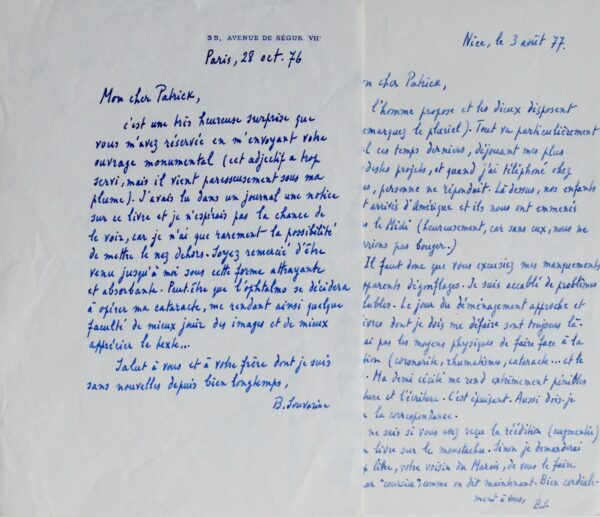 35, AVENUE DE SÉGUR. VIIᵉ
Paris, 28 oct. 76
Mon cher Patrick,
c'est une très heureuse surprise que
vous m'avez réservée en m'envoyant votre
ouvrage monumental (cet adjectif a trop
servi, mais il vient paresseusement sous ma
plume). J'avais lu dans un journal une notice
sur ce livre et je n'espérais pas la chance de
le voir, car je n'ai que rarement la possibilité
de mettre le nez dehors. Soyez remercié d'être
venu jusqu'à moi sous cette forme attrayante
et absorbante. Peut-être que l'ophtalmo se décidera
à opérer ma cataracte, me rendant ainsi quelque
faculté de mieux jouir des images et de mieux
apprécier le texte...
Salut à vous et à votre frère dont je suis
sans nouvelles depuis bien longtemps,
B. Souvarine
Nice, le 3 août 77.
on cher Patrick,
l'homme propose et les dieux disposent
emarquez le pluriel). Tout va particulièrement
l ces temps derniers, déjouant mes plus
destes projets, et quand j'ai téléphoné chez
s, personne ne répondait. Là dessus, nos enfants
t arrivés d'Amérique et ils nous ont emmenés
s le Midi (heureusement, car sans eux, nous ne
rrions pas bouger.)
Il faut donc que vous excusiez mes manquements
pparents dégonflages. Je suis accablé de problèmes
lubles. Le jour du déménagement approche et
ivres dont je dois me défaire sont toujours là.
ai pas les moyens physiques de faire face à la
tion (coronarite, rhumatismes, cataracte... et le
. Ma demi cécité me rend extrêmement pénibles
ture et l'écriture. C'est épuisant. Aussi dois-je
la correspondance.
ne sais si vous avez reçu la réédition (augmentée)
n livre sur le moustachu. Sinon je demanderai
libre, votre voisin du Marais, de vous le faire
ar "coursier" comme on dit maintenant. Bien cordiale-
ment à vous,
B.S.